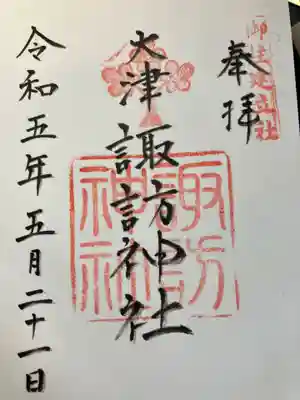 御柱建立社
奉拝
大津諏訪神社
諏訪神社
令和五年五月二十一日